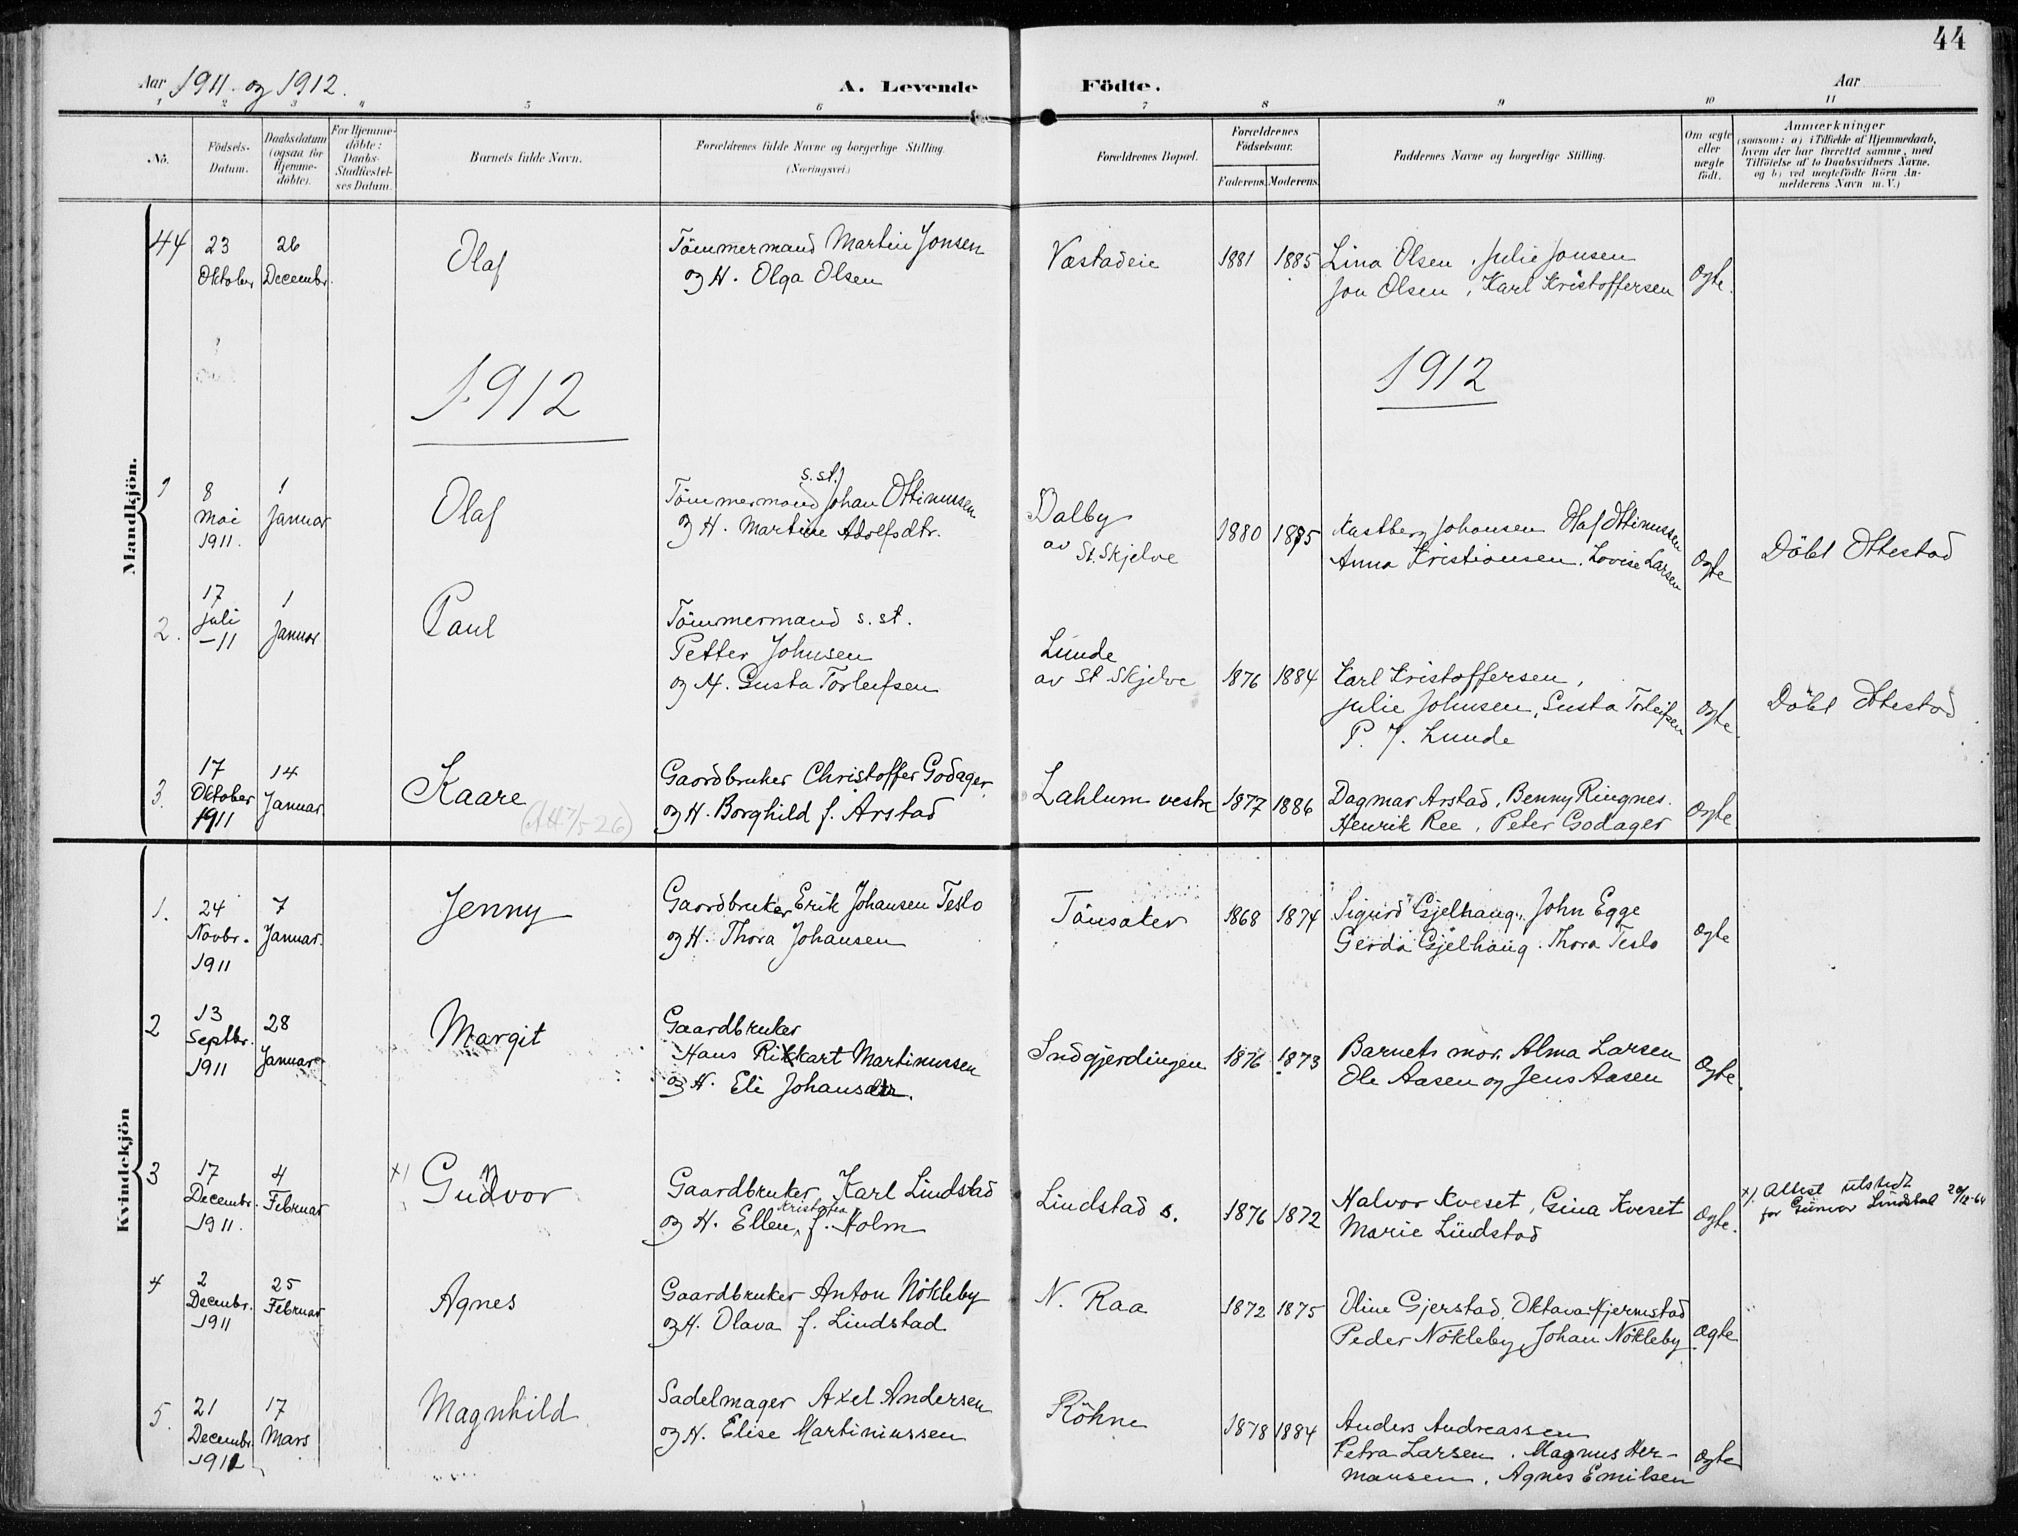 44
Aar 1911 og 1912.
A. Levende Födte.
Aar
1 2 3 4 5 6 7 8 9 10 11
No.
Födsels-
Datum.
Daabsdatum
(ogsaa for
Hjemme-
döbte).
For Hjemme-
döbte:
Daabs-
Stadfæstel-
ses Datum.
Barnets fulde Navn.
Forældrenes fulde Navne og borgerlige Stilling.
(Næringsvei.)
Forældrenes Bopæl.
Forældrenes
Födselsaar.
Faderens. Moderens.
Faddernes Navne og borgerlige Stilling.
Om ægte
eller
uægte
födt.
Anmærkninger
(saasom: a) i Tilfælde af Hjemmedaab,
hvem der har forrettet samme, med
Tilföielse af to Daabsvidners Navne.
og b) ved uægtefödte Börn An-
melderens Navn m. V.)
Mandkjön.
44
23
Oktober
26
Decembr.
Olaf
Tömmermand Martin Jonsen
og H. Olga Olsen
Væstadeie
1881 1885
Lina Olsen, Julie Jonsen
Jon Olsen, Karl Kristoffersen
Ægte.
1912
1912
1
8
Mai
1911.
1
Januar
Olaf
s.st.
Tömmermand Johan Ottinussen
og H. Martine Adolfsdtr.
Dalby
av St. Skjelve
1880 1885
Kastberg Johansen Olaf Ottinussen
Anna Kristiansen. Lovise Larsen
Ægte
Döbt Ottestad
2.
17
juli
-11
1
Januar
Paul
Tömmermand s. st.
Petter Johnsen
og H. Gusta Torleifsen
Lunde
av St Skjelve
1876 1884
Karl Kristoffersen,
Julie Johnsen, Gusta Torleifsen
P. J. Lunde
Ægte.
Döbt Ottestad
3.
17
Oktober
1911
14
Januar.
Kaare
(A47/5-26)
Gaardbruker Christoffer Godager
og H. Borghild f. Arstad
Lahlum vestre
1877 1886
Dagmar Arstad, Benny Ringnes.
Henrik Ree, Peter Godager
Ægte
Kvindekjön
1.
24
Novbr.
1911
7
Januar.
Jenny
Gaardbruker Erik Johansen Teslo
og H. Thora Johansen
Tönsaker
1868 1874
Sigurd Gjelhaug, John Egge
Gerda Gjelhaug. Thora Teslo
Ægte
2
13
Septbr.
1911
28
Januar
Margit
Gaardbruker
Hans Rikkart Martinussen
og H. Eli Johansdtr.
Sndgjerdingen
1876 1873
Barnets mor. Alma Larsen
Ole Aasen og Jens Aasen
Ægte.
3
17
Decembr.
1911.
4
Februar
x) Gudvor
n
Gaardbruker Karl Lindstad
Kristofa
og H. Ellen, f. Holm
Lindstad s.
1876 1872
Halvor Kveset, Gina Kveset
Marie Lindstad
Ægte.
x) Attest utstedt
for Gunvor Lindstad 20/10-64
4
2
Decembr.
1911
25
Februar
Agnes
Gaardbruker Anton Nökleby
og H. Olava f. Lindstad
N. Raa
1872 1875
Oline Gjerstad, Oktava Hjermstad
Peder Nökleby, Johan Nökleby.
Ægte
5.
21
Decembr.
1911
17
Mars
Magnhild
Sadelmager Axel Andersen
og H. Elise Martinussen
Röhne
1878 1884
Anders Andreassen
Petra Larsen, Magnus Her-
mansen, Agnes Emilsen
Ægte